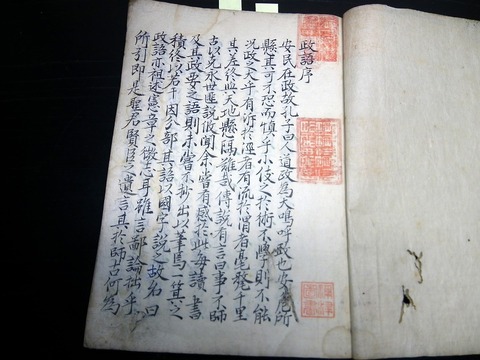 政語序
安民在政故孔子曰人道政為大嗚呼政也安危所
懸其可不忍而慎乎小伎之於術不學則不能
況政之大乎有沂於涇者有流於渭者毫髮千里
其差終與天地懸隔雖哉傳說有言曰事不師
古以克永世匪說攸聞余嘗有感於此每讀書
及其政要之語則未嘗不抄出以筆焉箕之
積終以若干因分部其語以國字說之故名曰
政語亦祖述憲章之微志耳雖言鄙論拙乎
所引即是聖君賢臣之遺言其於師古何為